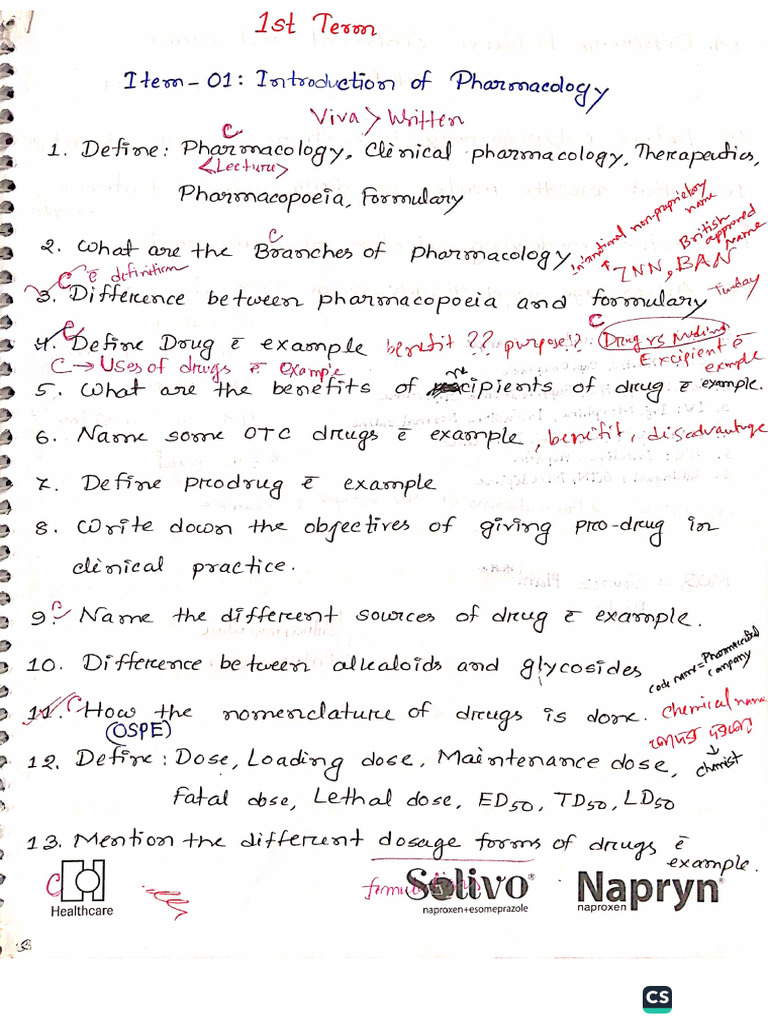 1st Term
Item-01: Introduction of Pharmacology
Viva > Written
C
1. Define: Pharmacology, Clinical pharmacology, Therapeutics,
<Lecture>
Pharmacopoeia, Formulary
C
2. What are the Branches of Pharmacology
non-proprietary name
British approved Name
INN, BAN
C c̄ definition
3. Difference between pharmacopoeia and formulary
C
4. Define Drug c̄ example benefit ?? purpose!? Drug vs
C → Uses of drugs c̄ Example
Excipient c̄ example
5. What are the benefits of cipients of drug c̄ example.
6. Name some OTC drugs c̄ example, benefit, disadvantage
7. Define prodrug c̄ example
8. Write down the objectives of giving pro-drug in
clinical practice.
C
9. Name the different sources of drug c̄ example.
10. Difference between alkaloids and glycosides
code name = Pharmaceutical company
C
11. How the nomenclature of drugs is done. Chemical name
(OSPE)
↓
chemist
12. Define: Dose, Loading dose, Maintenance dose,
Fatal dose, Lethal dose, ED50, TD50, LD50
13. Mention the different dosage forms of drugs c̄
example.
C
Healthcare
Solivo®
naproxen+esomeprazole
Napryn®
naproxen
CS